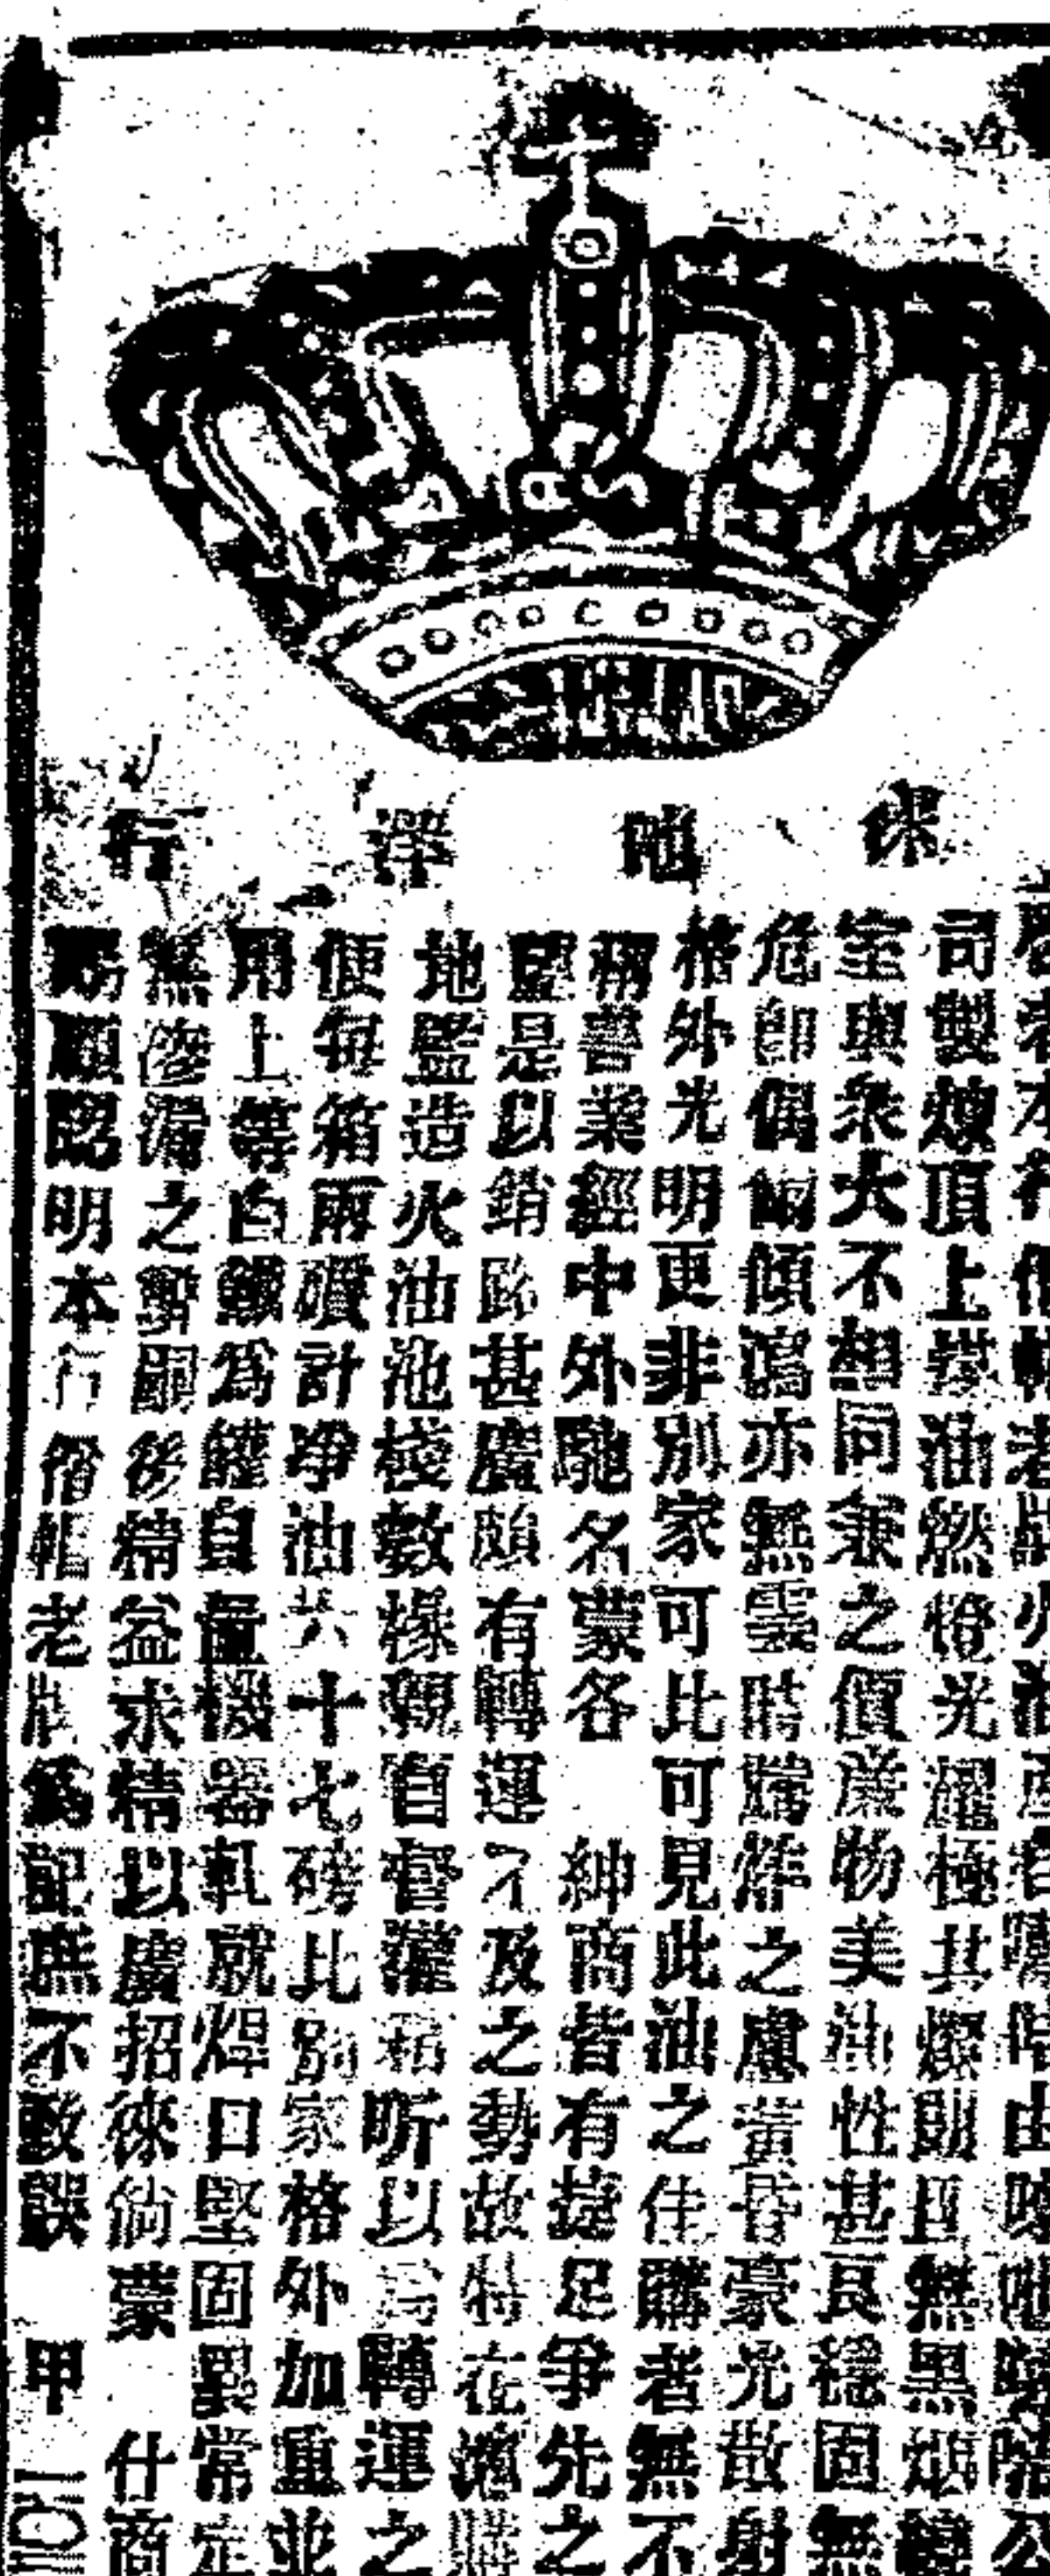 行洋地
司製煉頂上等油燃燈光耀極其燦朗且無黑烟
室與衆大不相同兼之價廉物美油性甚良穩固無
危即偶爾傾瀉亦無雲時騰炸之慮黃昏豪光散射
格外光明更非別家可比可見此油之佳購者無不
稱善業經中外馳名蒙各 紳商皆有捷足爭先之
望是以銷路甚廣頗有轉運不及之勢故特在
地監造火油池棧數椽親自督灌箱听以為轉運之
便每箱兩罐計凈油共十七磅比別家格外加重並
用上等白鐵為罐自置機器軋就焊口堅固異常定
無滲漏之弊嗣後精益求精以廣招徠倘蒙 什商
賜顧認明本行僧帽老牌為記庶不致誤 甲